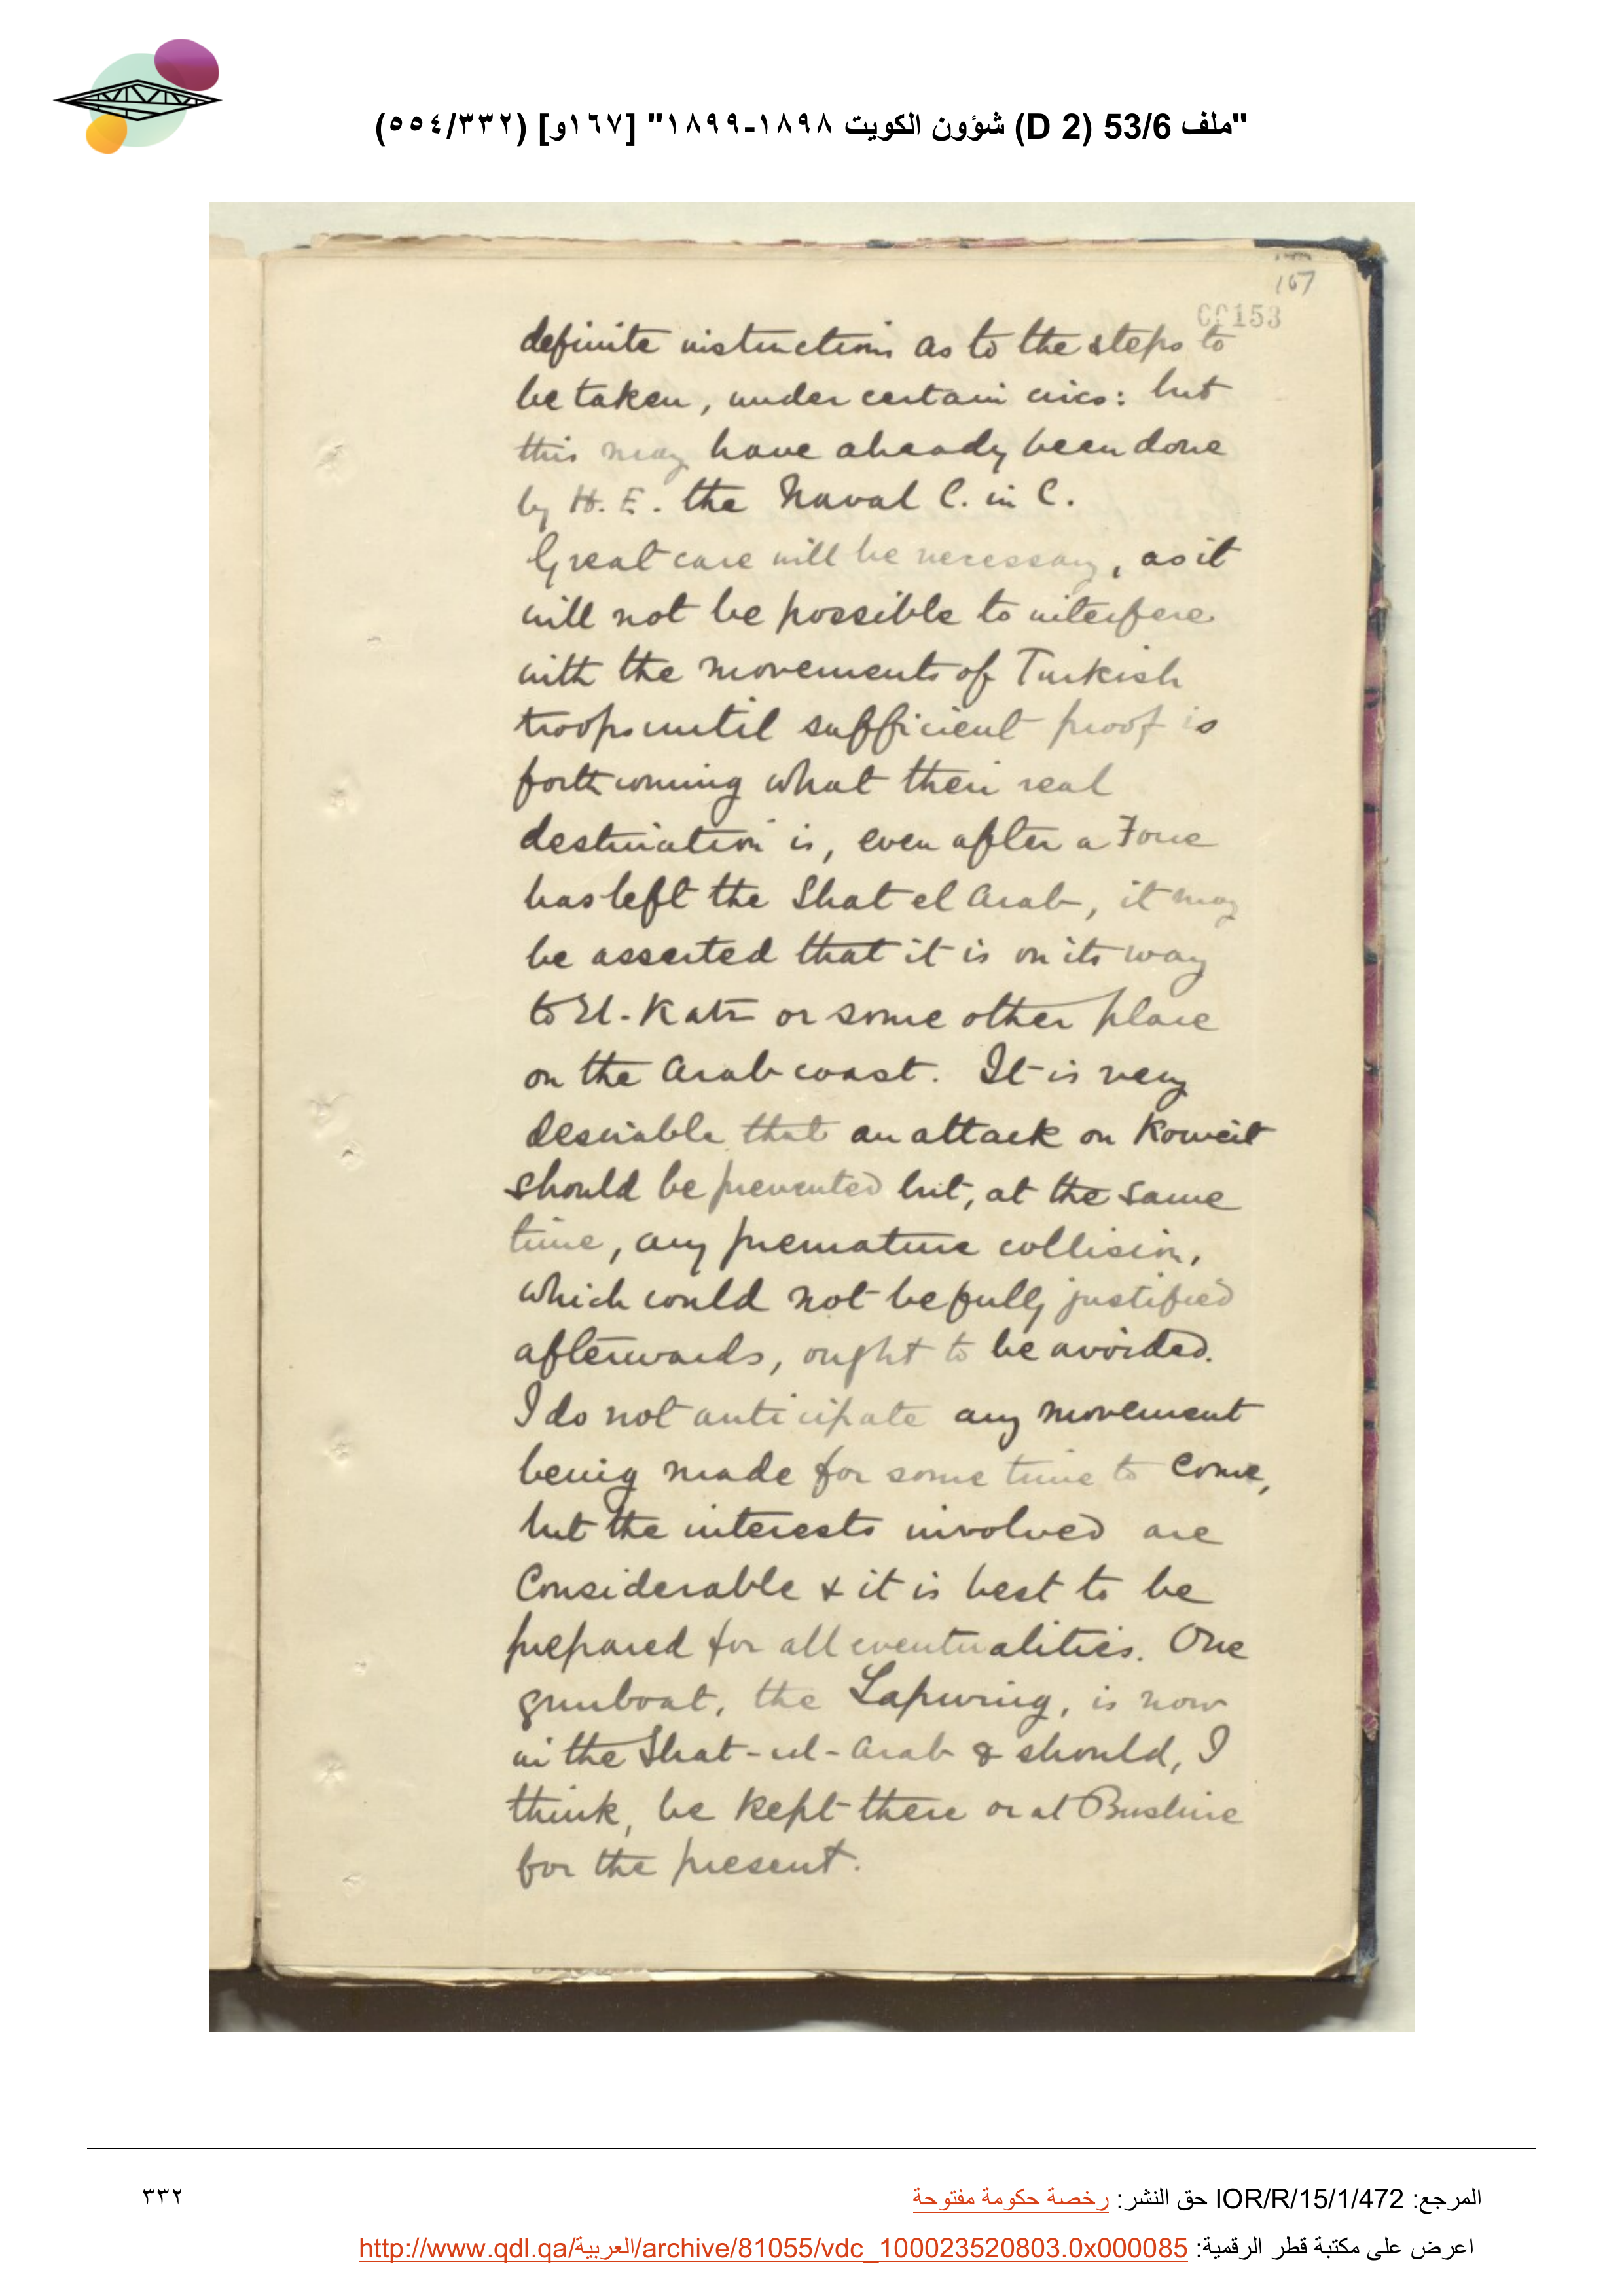 "ملف 53/6 (D 2) شؤون الكويت ١٨٩٨-١٨٩٩" [١٦٧و] (٥٥٤/٣٣٢)
167
00153
definite instructions as to the steps to
be taken, under certain circs: but
this may have already been done
by H. E. the Naval C. in C.
Great care will be necessary, as it
will not be possible to interfere
with the movements of Turkish
troops until sufficient proof is
forthcoming what their real
destination is, even after a Force
has left the Shat el Arab, it may
be asserted that it is on its way
to El-Katr or some other place
on the Arab coast. It is very
desirable that an attack on Koweit
should be prevented but, at the same
time, any premature collision,
which could not be fully justified
afterwards, ought to be avoided.
I do not anticipate any movement
being made for some time to come,
but the interests involved are
Considerable & it is best to be
prepared for all eventualities. One
gunboat, the Lapwing, is now
in the Shat-ul-Arab & should, I
think, be kept there or at Bushire
for the present.
المرجع: IOR/R/15/1/472 حق النشر: رخصة حكومة مفتوحة
٣٣٢
اعرض على مكتبة قطر الرقمية: http://www.qdl.qa/العربية/archive/81055/vdc_100023520803.0x000085